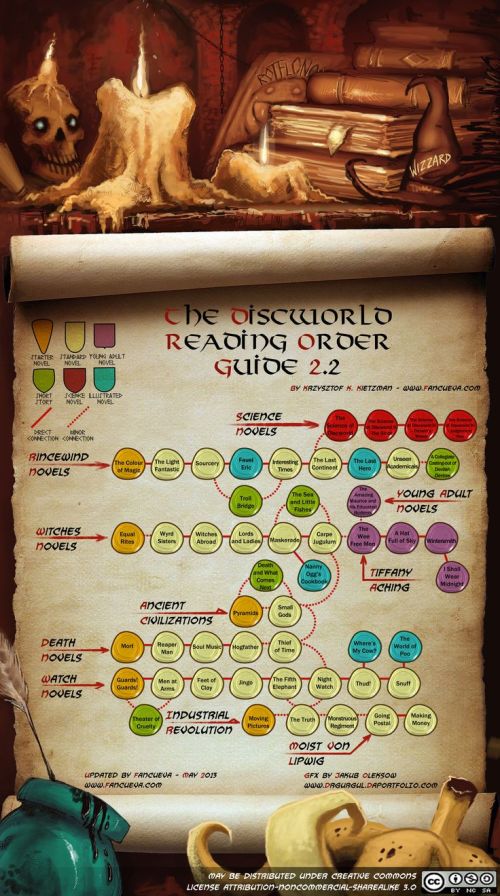 ROTFLCNO
WIZZARD
The Discworld
Reading Order
Guide 2.2
by Krzysztof K. Kietzman - www.fancueva.com
Starter Novel
Standard Novel
Young Adult Novel
Short Story
Science Novel
Illustrated Novel
Direct Connection
Minor Connection
Science Novels
The Science of Discworld
Rincewind Novels
The Colour of Magic
The Light Fantastic
Sourcery
Faust Eric
Interesting Times
The Last Continent
The Last Hero
Unseen Academicals
A Collegiate Casting-out of Devilish Devices
Troll Bridge
The Sea and Little Fishes
The Amazing Maurice and His Educated Rodents
Young Adult Novels
Witches Novels
Equal Rites
Wyrd Sisters
Witches Abroad
Lords and Ladies
Maskerade
Carpe Jugulum
The Wee Free Men
A Hat Full of Sky
Wintersmith
Death and What Comes Next
Nanny Ogg's Cookbook
Tiffany Aching
I Shall Wear Midnight
Ancient Civilizations
Pyramids
Small Gods
Death Novels
Mort
Reaper Man
Soul Music
Hogfather
Thief of Time
Where's My Cow?
The World of Poo
Watch Novels
Guards! Guards!
Men at Arms
Feet of Clay
Jingo
The Fifth Elephant
Night Watch
Thud!
Snuff
Theater of Cruelty
Industrial Revolution
Moving Pictures
The Truth
Monstrous Regiment
Going Postal
Making Money
Moist von Lipwig
Updated by Fancueva - May 2013
www.fancueva.com
GFX by Jakub Oleksow
www.drgurgul.daportfolio.com
May be distributed under Creative Commons
License Attribution-NonCommercial-ShareAlike 3.0
CC
BY NC SA